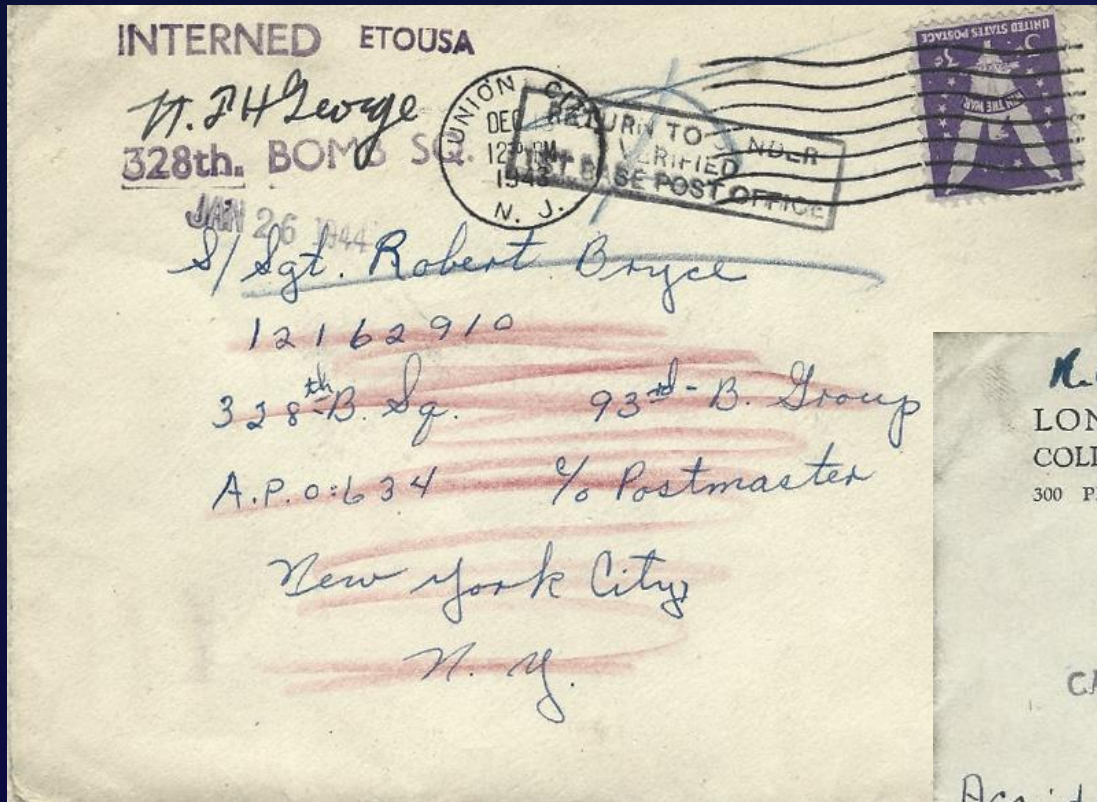 INTERNED ETOUSA
George
328th. BOMB SQ.
JAN 26 1944
UNION CITY
DEC
12 PM
1943
N. J.
RETURN TO SENDER
VERIFIED
1ST BASE POST OFFICE
UNITED STATES POSTAGE
3¢
WIN THE WAR
S/Sgt. Robert Bryce
12162910
328th B. Sq. 93rd - B. Group
A.P.O: 634 c/o Postmaster
New York City,
N. Y.
LON
COLL
300 P
CA